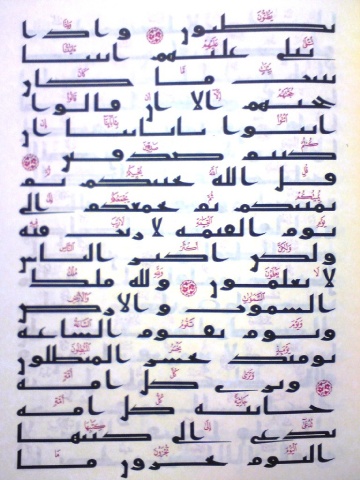 يظنون ۝ واذا
تتلى عليهم ايتنا
بينت ما كان
حجتهم الا ان قالوا
ائتوا بابائنا ان
كنتم صدقين ۝
قل الله يحييكم ثم
يميتكم ثم يجمعكم الى
يوم القيمة لا ريب فيه
ولكن اكثر الناس
لا يعلمون ۝ ولله ملك
السموت والارض
ويوم تقوم الساعة
يومئذ يخسر المبطلون
۝ وترى كل امة
جاثية كل امة
تدعى الى كتبها
اليوم تجزون ما